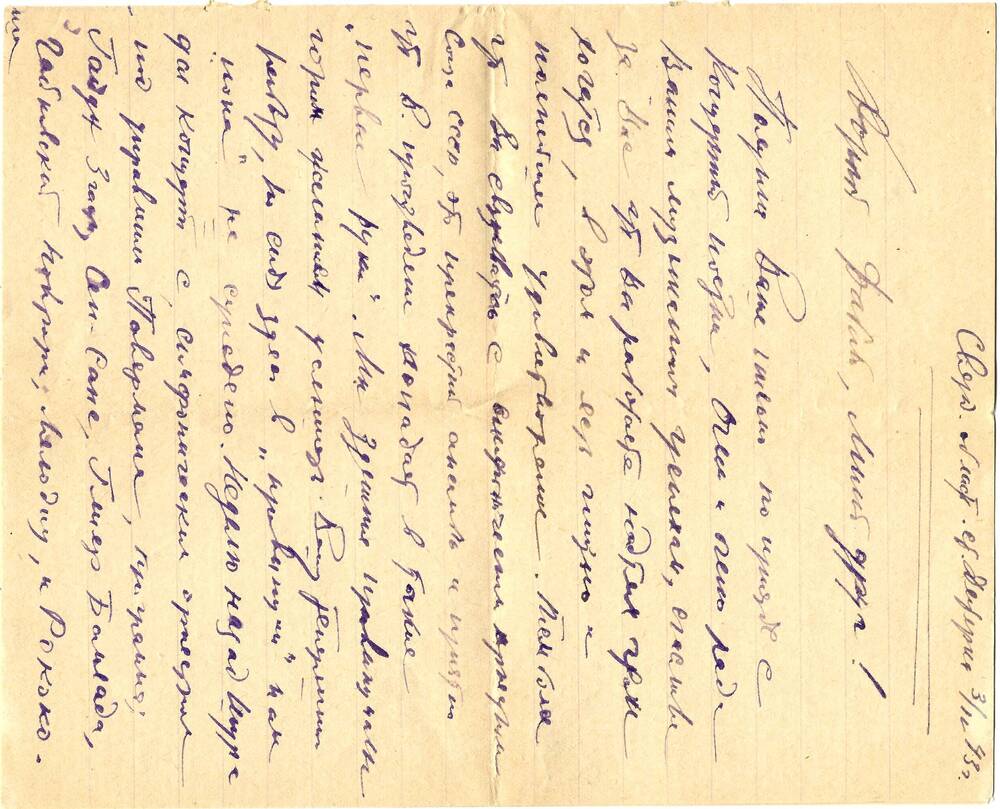 Сверд. област. ст. 3/II 43 г.
Дорогой Фабий, милый друг!
Получила Ваше письмо по приезде с
Концертной поездки, Очень и очень рада
Вашим музыкальным успехам, счастлива
за Вас что Вы работаете над тем чем
хочется, в этом и есть жизнь и
полнейшее удовлетворение. Тем более
что Вы связываетесь с симфоническим оркестром
Союза СССР, это прекрасный ансамбль и приятно
что В. произведение попадает в такие
„первые руки“. Мы здешние провинциалы
горим желанием услышать Вашу теперешнюю
работу, но сидя здесь в „провинции“ нам
„пока“ не суждено. Неделю назад Шура
дал концерт с симфоническим оркестром
под управлением Павермана, программа:
Гайдн Сен-Санс, Глиер Баллада,
Чайковский Ноктюрн, Мелодию, и Рококо.